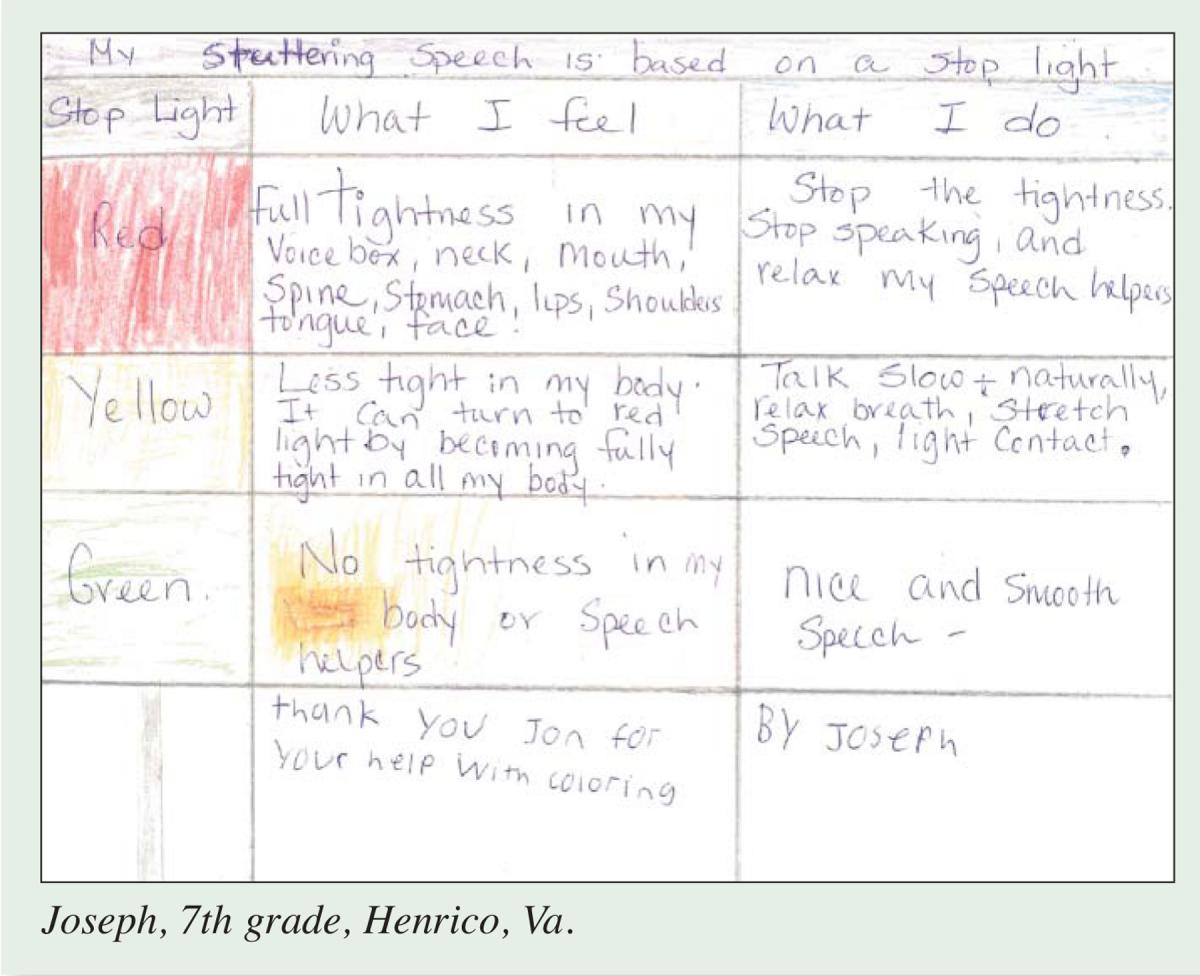 My Stuttering Speech is based on a stop light
Stop Light
What I feel
What I do
Red
Full Tightness in my
Voice box, neck, mouth,
Spine, Stomach, lips, Shoulders
tongue, face.
Stop the tightness.
Stop speaking, and
relax my Speech helpers
Yellow
Less tight in my body.
It can turn to red
light by becoming fully
tight in all my body.
Talk Slow + naturally,
relax breath, Stretch
Speech, light Contact.
Green.
No tightness in my
body or Speech
helpers
nice and Smooth
Speech -
thank you Jon for
Your help with coloring
BY Joseph
Joseph, 7th grade, Henrico, Va.